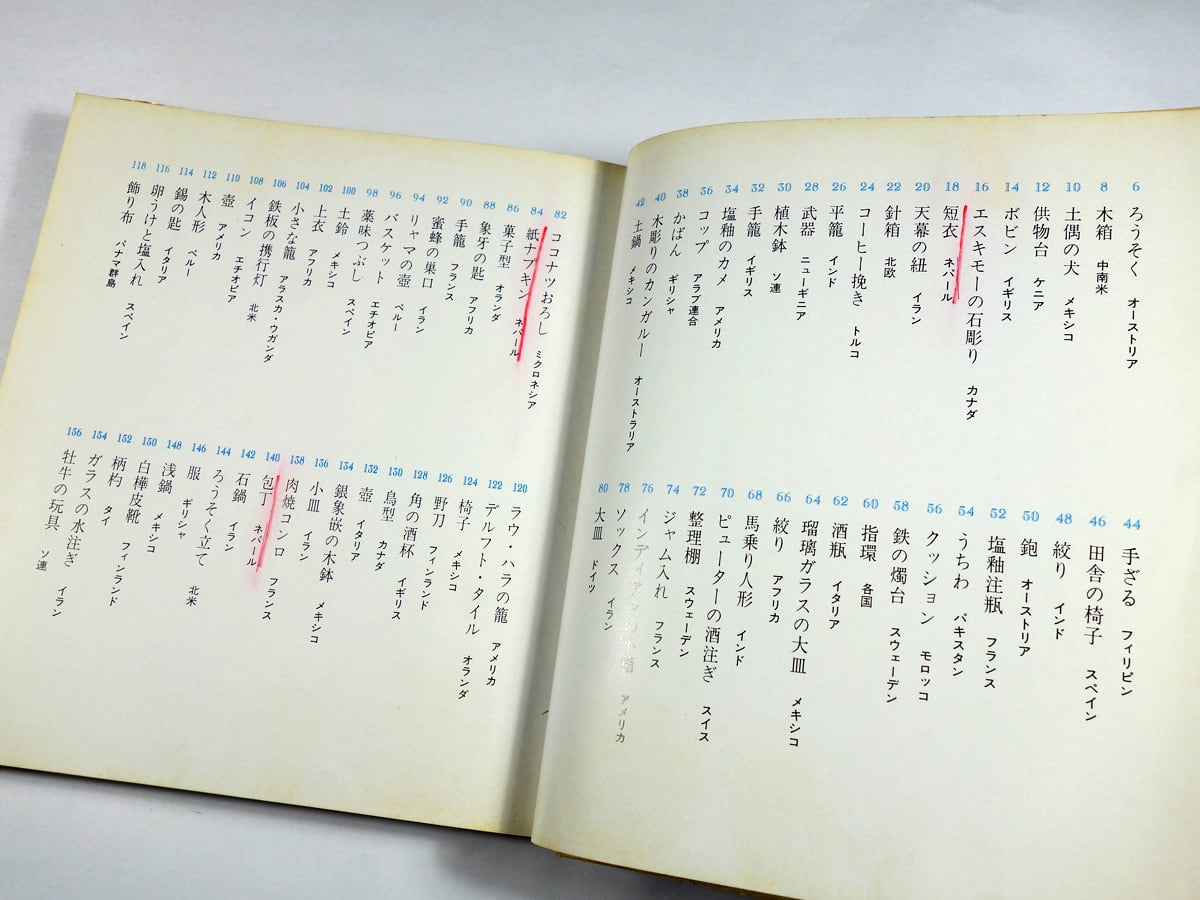 6 ろうそく オーストリア
8 木箱 中南米
10 土偶の犬 メキシコ
12 供物台 ケニア
14 ボビン イギリス
16 エスキモーの石彫り カナダ
18 短衣 ネパール
20 天幕の紐 イラン
22 針箱 北欧
24 コーヒー挽き トルコ
26 平籠 インド
28 武器 ニューギニア
30 植木鉢 ソ連
32 手籠 イギリス
34 塩釉のカメ アメリカ
36 コップ アラブ連合
38 かばん ギリシャ
40 木彫りのカンガルー オーストラリア
42 土鍋 メキシコ
44 手ざる フィリピン
46 田舎の椅子 スペイン
48 絞り インド
50 鉋 オーストリア
52 塩釉注瓶 フランス
54 うちわ パキスタン
56 クッション モロッコ
58 鉄の燭台 スウェーデン
60 指環 各国
62 酒瓶 イタリア
64 瑠璃ガラスの大皿 メキシコ
66 絞り アフリカ
68 馬乗り人形 インド
70 ピューターの酒注ぎ スイス
72 整理棚 スウェーデン
74 ジャム入れ フランス
76 インディアンの アメリカ
78 ソックス イラン
80 大皿 ドイツ
82 ココナツおろし ミクロネシア
84 紙ナプキン ネパール
86 菓子型 オランダ
88 象牙の匙 アフリカ
90 手籠 フランス
92 蜜蜂の巣口 イラン
94 リャマの壺 ペルー
96 バスケット エチオピア
98 薬味つぶし スペイン
100 土鈴 メキシコ
102 上衣 アフリカ
104 小さな籠 アラスカ・ウガンダ
106 鉄板の携行灯 北米
108 イコン エチオピア
110 壺 アメリカ
112 木人形 ペルー
114 錫の匙 イタリア
116 卵うけと塩入れ スペイン
118 飾り布 パナマ群島
120 ラウ・ハラの籠 アメリカ
122 デルフト・タイル オランダ
124 椅子 メキシコ
126 野刀 フィンランド
128 角の酒杯 イギリス
130 鳥型 カナダ
132 壺 イタリア
134 銀象嵌の木鉢 メキシコ
136 小皿 イラン
138 肉焼コンロ フランス
140 包丁 ネパール
142 石鍋 イラン
144 ろうそく立て 北米
146 服 ギリシャ
148 浅鍋 メキシコ
150 白樺皮靴 フィンランド
152 柄杓 タイ
154 ガラスの水注ぎ イラン
156 牡牛の玩具 ソ連